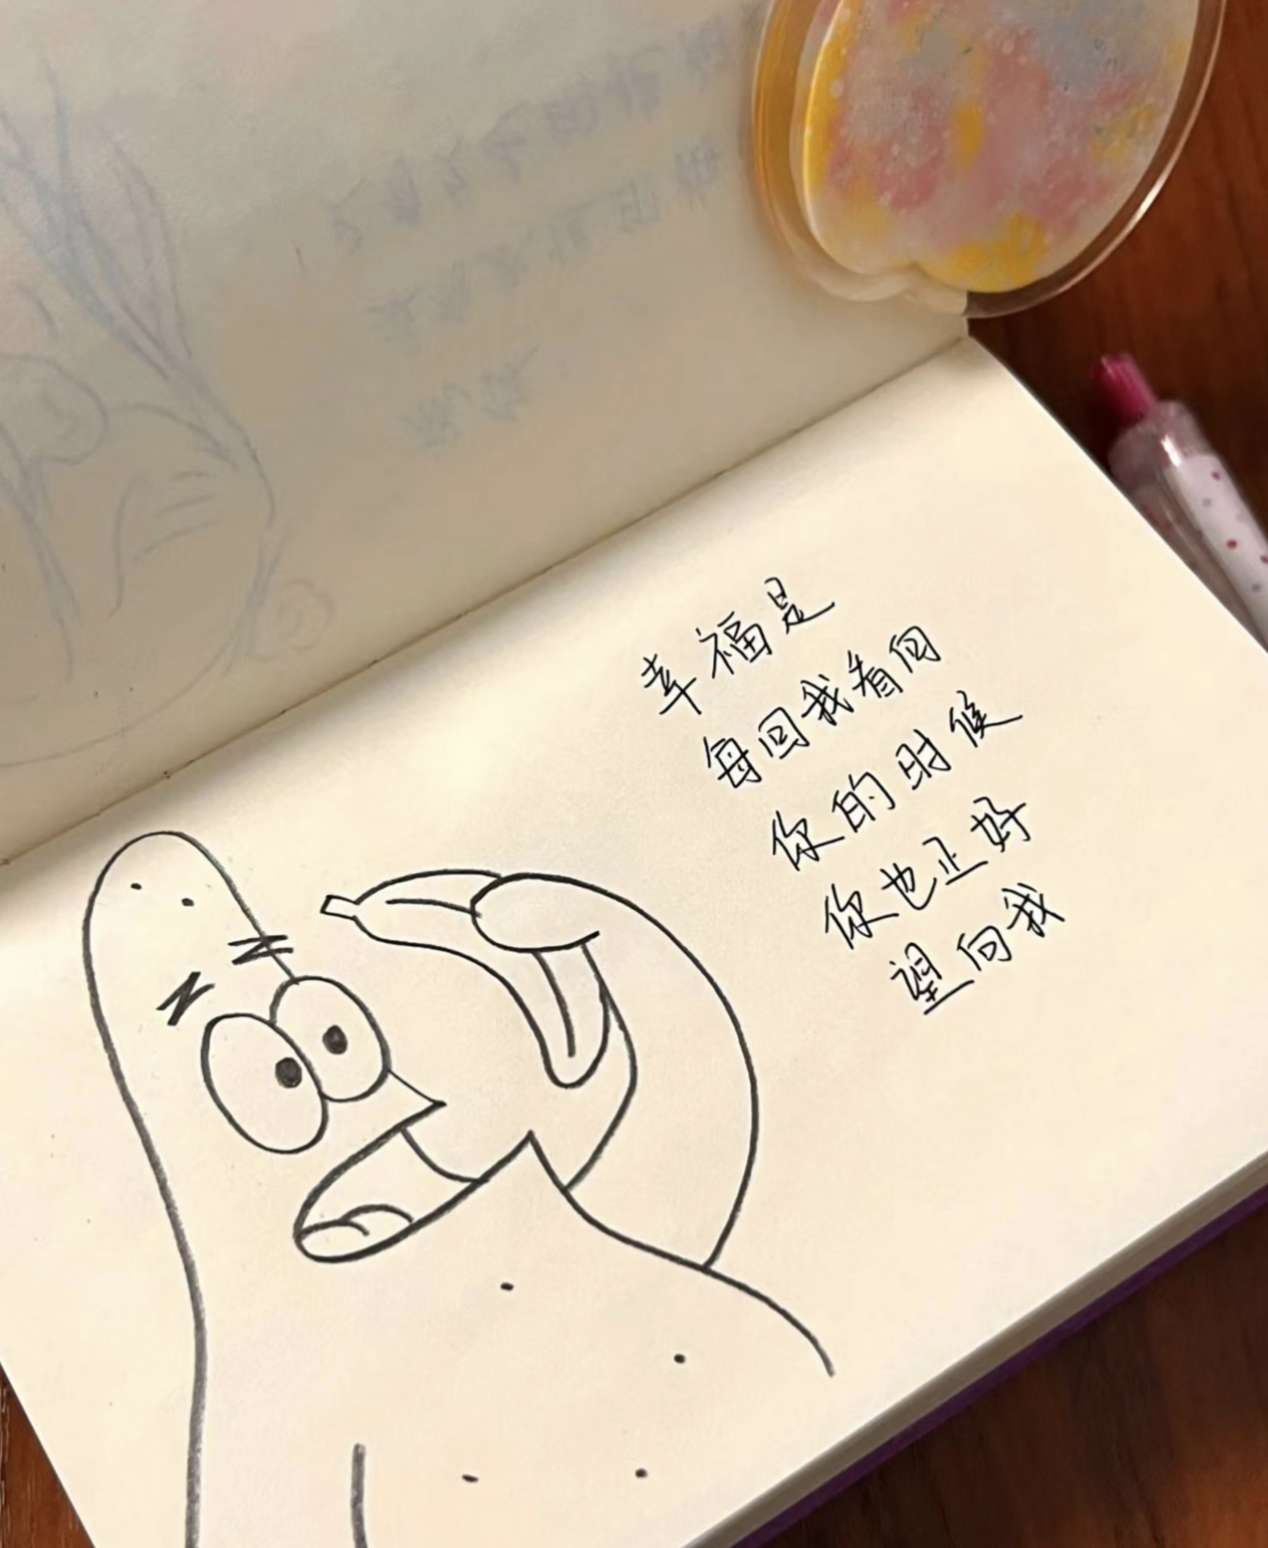 幸福是
每回我看向
你的时候
你也正好
望向我